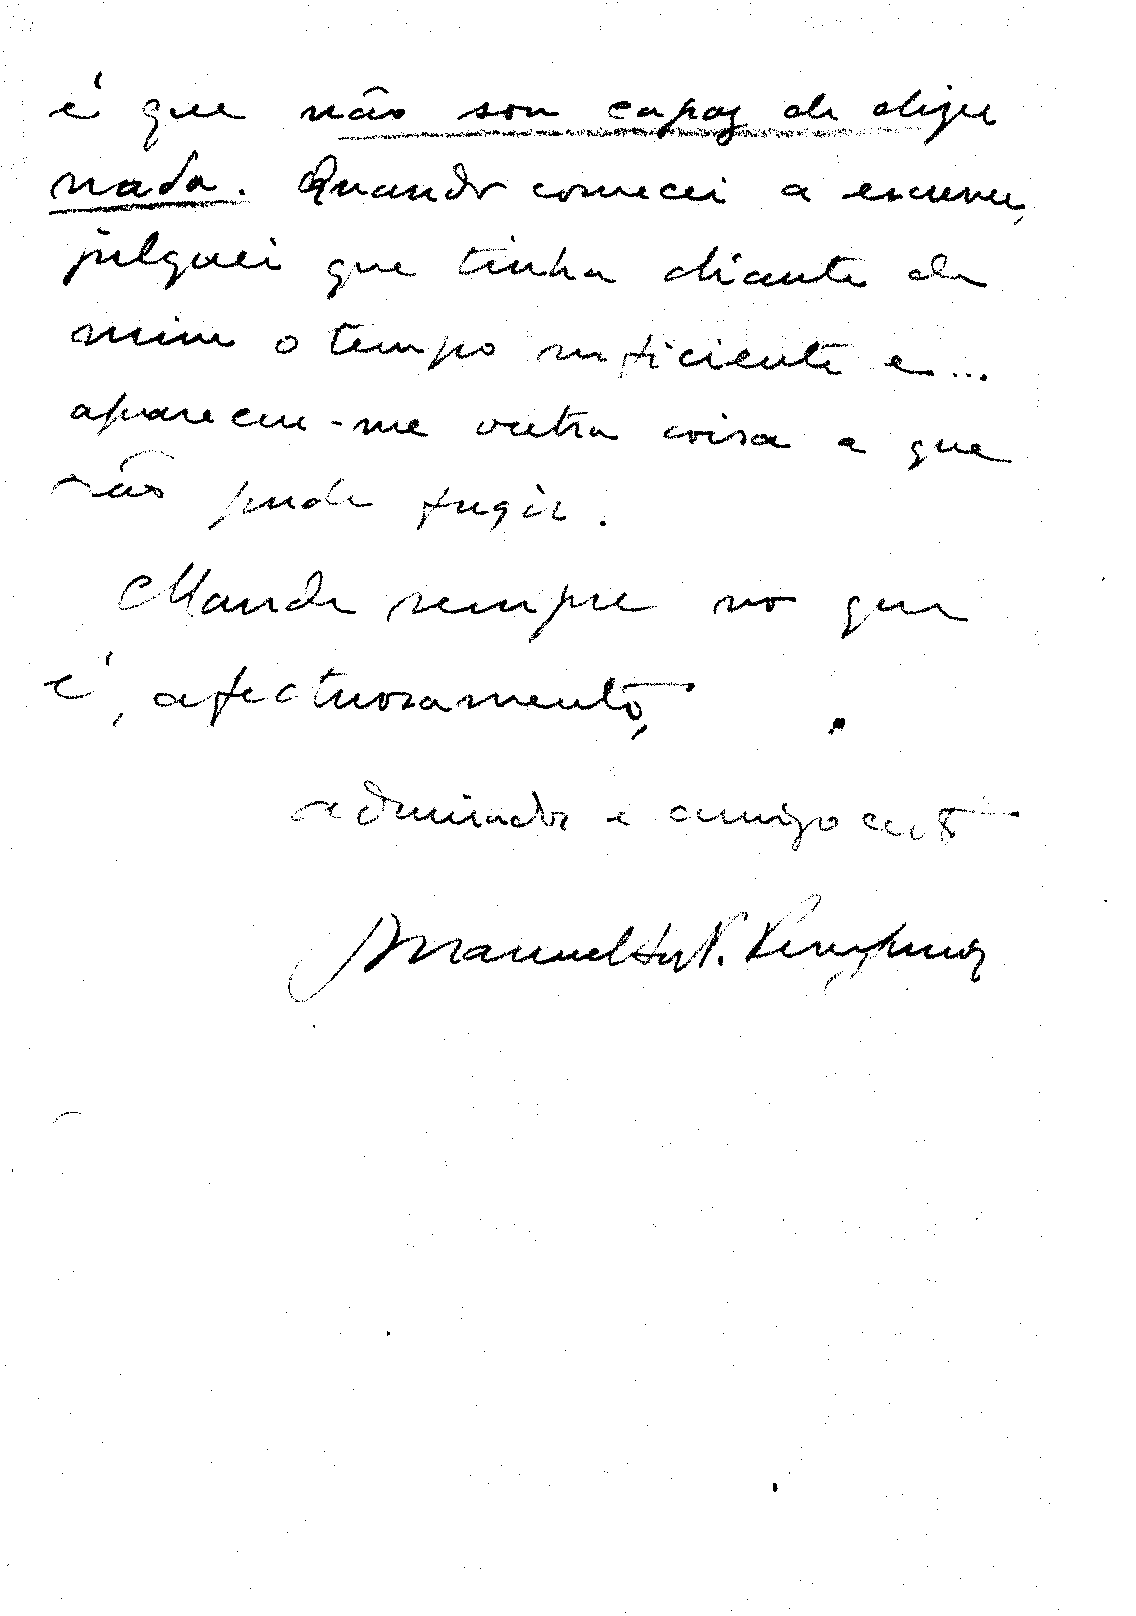 é que não sou capaz de dizer
nada. Quando comecei a escrever,
julguei que tinha diante de
mim o tempo suficiente e...
apareceu-me outra coisa a que
não pude fugir.
Mande sempre no que
é, afectuosamente,
admirador e amigo certo
Manuel